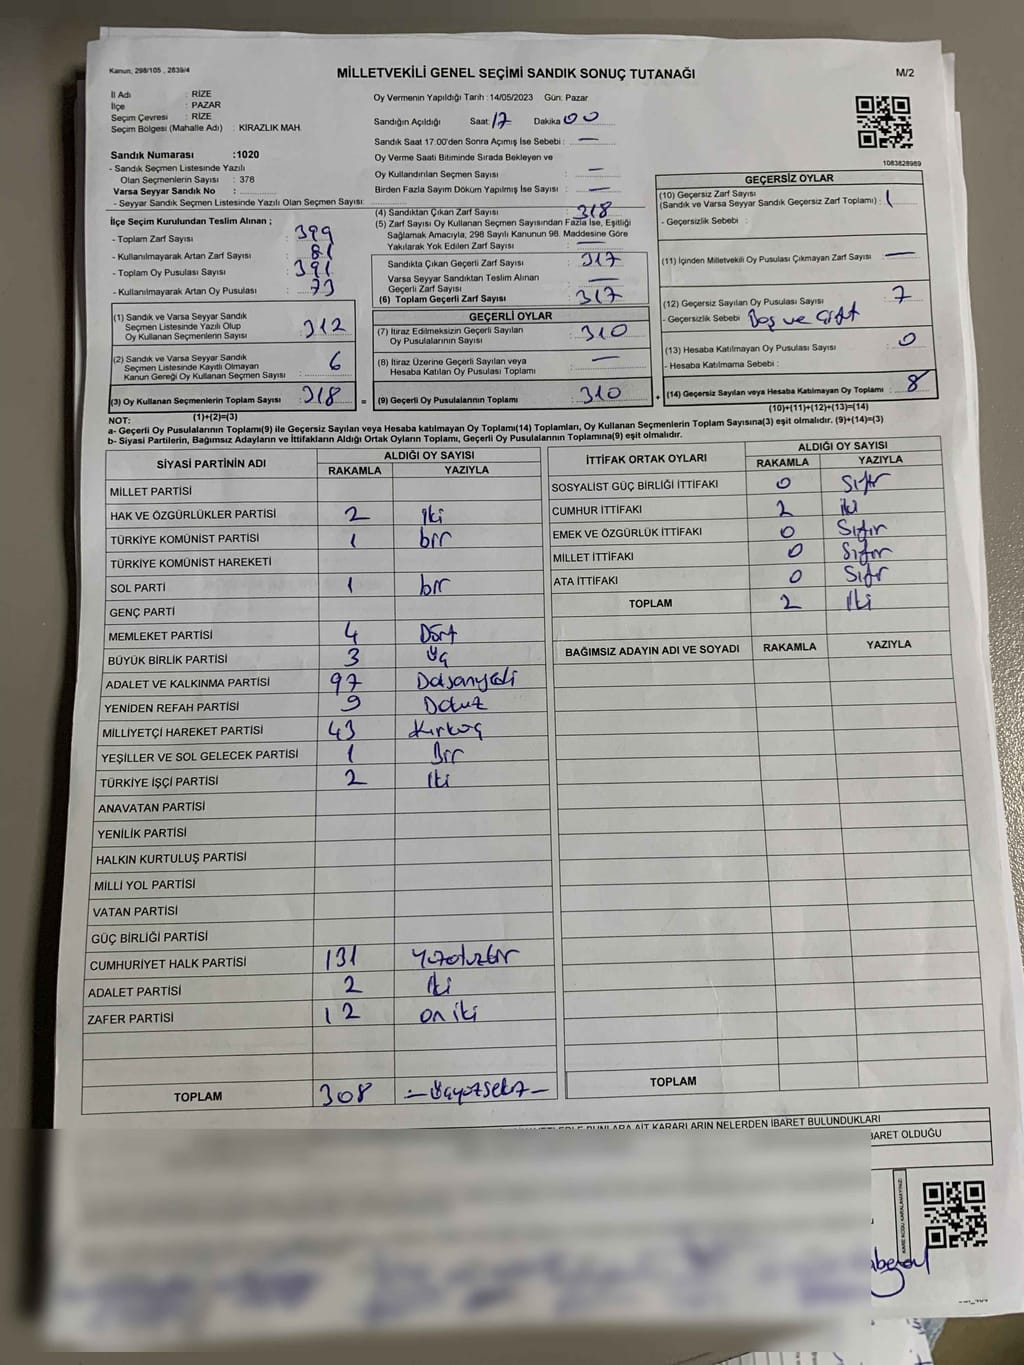 Kanun, 298/105 , 2839/4
MİLLETVEKİLİ GENEL SEÇİMİ SANDIK SONUÇ TUTANAĞI
M/2
İl Adı : RİZE
İlçe : PAZAR
Seçim Çevresi : RİZE
Seçim Bölgesi (Mahalle Adı) : KİRAZLIK MAH.
Oy Vermenin Yapıldığı Tarih : 14/05/2023 Gün: Pazar
Sandığın Açıldığı Saat: 17 Dakika 00
Sandık Saat 17:00'den Sonra Açımış İse Sebebi : —
Oy Verme Saati Bitiminde Sırada Bekleyen ve
Oy Kullandırılan Seçmen Sayısı : —
Birden Fazla Sayım Döküm Yapılmış İse Sayısı : —
Sandık Numarası :1020
- Sandık Seçmen Listesinde Yazılı
Olan Seçmenlerin Sayısı : 378
Varsa Seyyar Sandık No :
- Seyyar Sandık Seçmen Listesinde Yazılı Olan Seçmen Sayısı:
1083828989
İlçe Seçim Kurulundan Teslim Alınan ;
- Toplam Zarf Sayısı : 399
- Kullanılmayarak Artan Zarf Sayısı : 81
- Toplam Oy Pusulası Sayısı : 391
- Kullanılmayarak Artan Oy Pusulası : 73
(1) Sandık ve Varsa Seyyar Sandık
Seçmen Listesinde Yazılı Olup
Oy Kullanan Seçmenlerin Sayısı : 312
(2) Sandık ve Varsa Seyyar Sandık
Seçmen Listesinde Kayıtlı Olmayan
Kanun Gereği Oy Kullanan Seçmen Sayısı : 6
(3) Oy Kullanan Seçmenlerin Toplam Sayısı : 318
(1)+(2)=(3)
(4) Sandıktan Çıkan Zarf Sayısı : 318
(5) Zarf Sayısı Oy Kullanan Seçmen Sayısından Fazla İse, Eşitliği
Sağlamak Amacıyla, 298 Sayılı Kanunun 98. Maddesine Göre
Yakılarak Yok Edilen Zarf Sayısı : —
Sandıkta Çıkan Geçerli Zarf Sayısı : 317
Varsa Seyyar Sandıktan Teslim Alınan
Geçerli Zarf Sayısı : —
(6) Toplam Geçerli Zarf Sayısı : 317
GEÇERLİ OYLAR
(7) İtiraz Edilmeksizin Geçerli Sayılan
Oy Pusulalarının Sayısı : 310
(8) İtiraz Üzerine Geçerli Sayılan veya
Hesaba Katılan Oy Pusulası Toplamı : —
= (9) Geçerli Oy Pusulalarının Toplamı : 310
GEÇERSİZ OYLAR
(10) Geçersiz Zarf Sayısı
(Sandık ve Varsa Seyyar Sandık Geçersiz Zarf Toplamı) : 1
- Geçersizlik Sebebi :
(11) İçinden Milletvekili Oy Pusulası Çıkmayan Zarf Sayısı : —
(12) Geçersiz Sayılan Oy Pusulası Sayısı : 7
- Geçersizlik Sebebi Boş ve Çift
(13) Hesaba Katılmayan Oy Pusulası Sayısı : 0
- Hesaba Katılmama Sebebi :
+ (14) Geçersiz Sayılan veya Hesaba Katılmayan Oy Toplamı : 8
(10)+(11)+(12)+(13)=(14)
NOT:
a- Geçerli Oy Pusulalarının Toplamı(9) ile Geçersiz Sayılan veya Hesaba Katılmayan Oy Toplamı(14) Toplamları, Oy Kullanan Seçmenlerin Toplam Sayısına(3) eşit olmalıdır. (9)+(14)=(3)
b- Siyasi Partilerin, Bağımsız Adayların ve İttifakların Aldığı Ortak Oyların Toplamı, Geçerli Oy Pusulalarının Toplamına(9) eşit olmalıdır.
SİYASİ PARTİNİN ADI ALDIĞI OY SAYISI
RAKAMLA YAZIYLA
MİLLET PARTİSİ
HAK VE ÖZGÜRLÜKLER PARTİSİ 2 iki
TÜRKİYE KOMÜNİST PARTİSİ 1 bir
TÜRKİYE KOMÜNİST HAREKETİ
SOL PARTİ 1 bir
GENÇ PARTİ
MEMLEKET PARTİSİ 4 Dört
BÜYÜK BİRLİK PARTİSİ 3 Üç
ADALET VE KALKINMA PARTİSİ 97 Doksanyedi
YENİDEN REFAH PARTİSİ 9 Dokuz
MİLLİYETÇİ HAREKET PARTİSİ 43 Kırküç
YEŞİLLER VE SOL GELECEK PARTİSİ 1 Bir
TÜRKİYE İŞÇİ PARTİSİ 2 İki
ANAVATAN PARTİSİ
YENİLİK PARTİSİ
HALKIN KURTULUŞ PARTİSİ
MİLLİ YOL PARTİSİ
VATAN PARTİSİ
GÜÇ BİRLİĞİ PARTİSİ
CUMHURİYET HALK PARTİSİ 131 Yüzotuzbir
ADALET PARTİSİ 2 İki
ZAFER PARTİSİ 12 on iki
TOPLAM 308 —Üçyüzsekiz—
İTTİFAK ORTAK OYLARI ALDIĞI OY SAYISI
RAKAMLA YAZIYLA
SOSYALİST GÜÇ BİRLİĞİ İTTİFAKI 0 Sıfır
CUMHUR İTTİFAKI 2 iki
EMEK VE ÖZGÜRLÜK İTTİFAKI 0 Sıfır
MİLLET İTTİFAKI 0 Sıfır
ATA İTTİFAKI 0 Sıfır
TOPLAM 2 İki
BAĞIMSIZ ADAYIN ADI VE SOYADI RAKAMLA YAZIYLA
TOPLAM
KARARLARIN NELERDEN İBARET BULUNDUKLARI
BARET OLDUĞU